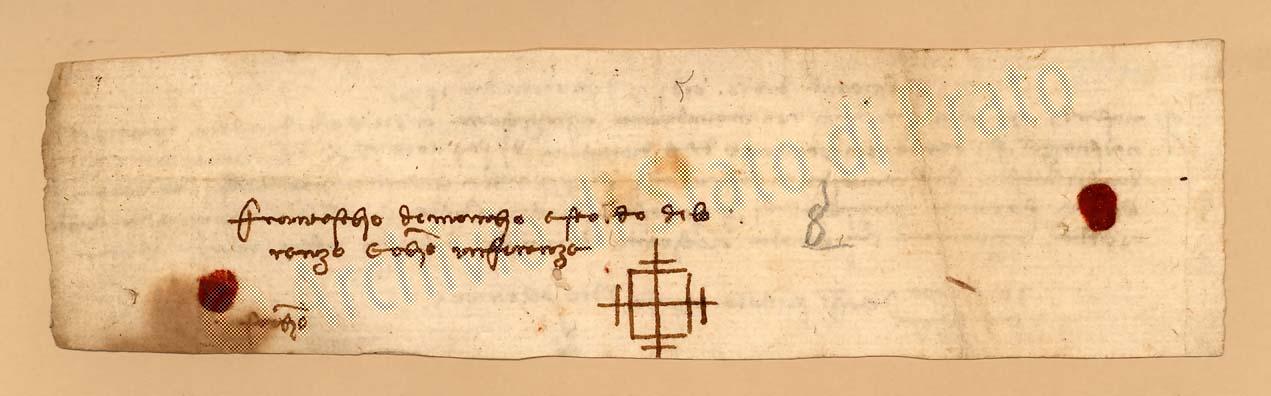 franciescho demarcho e stoldo di lo
renzo e chō in firenze
8
Archivio di Stato di Prato